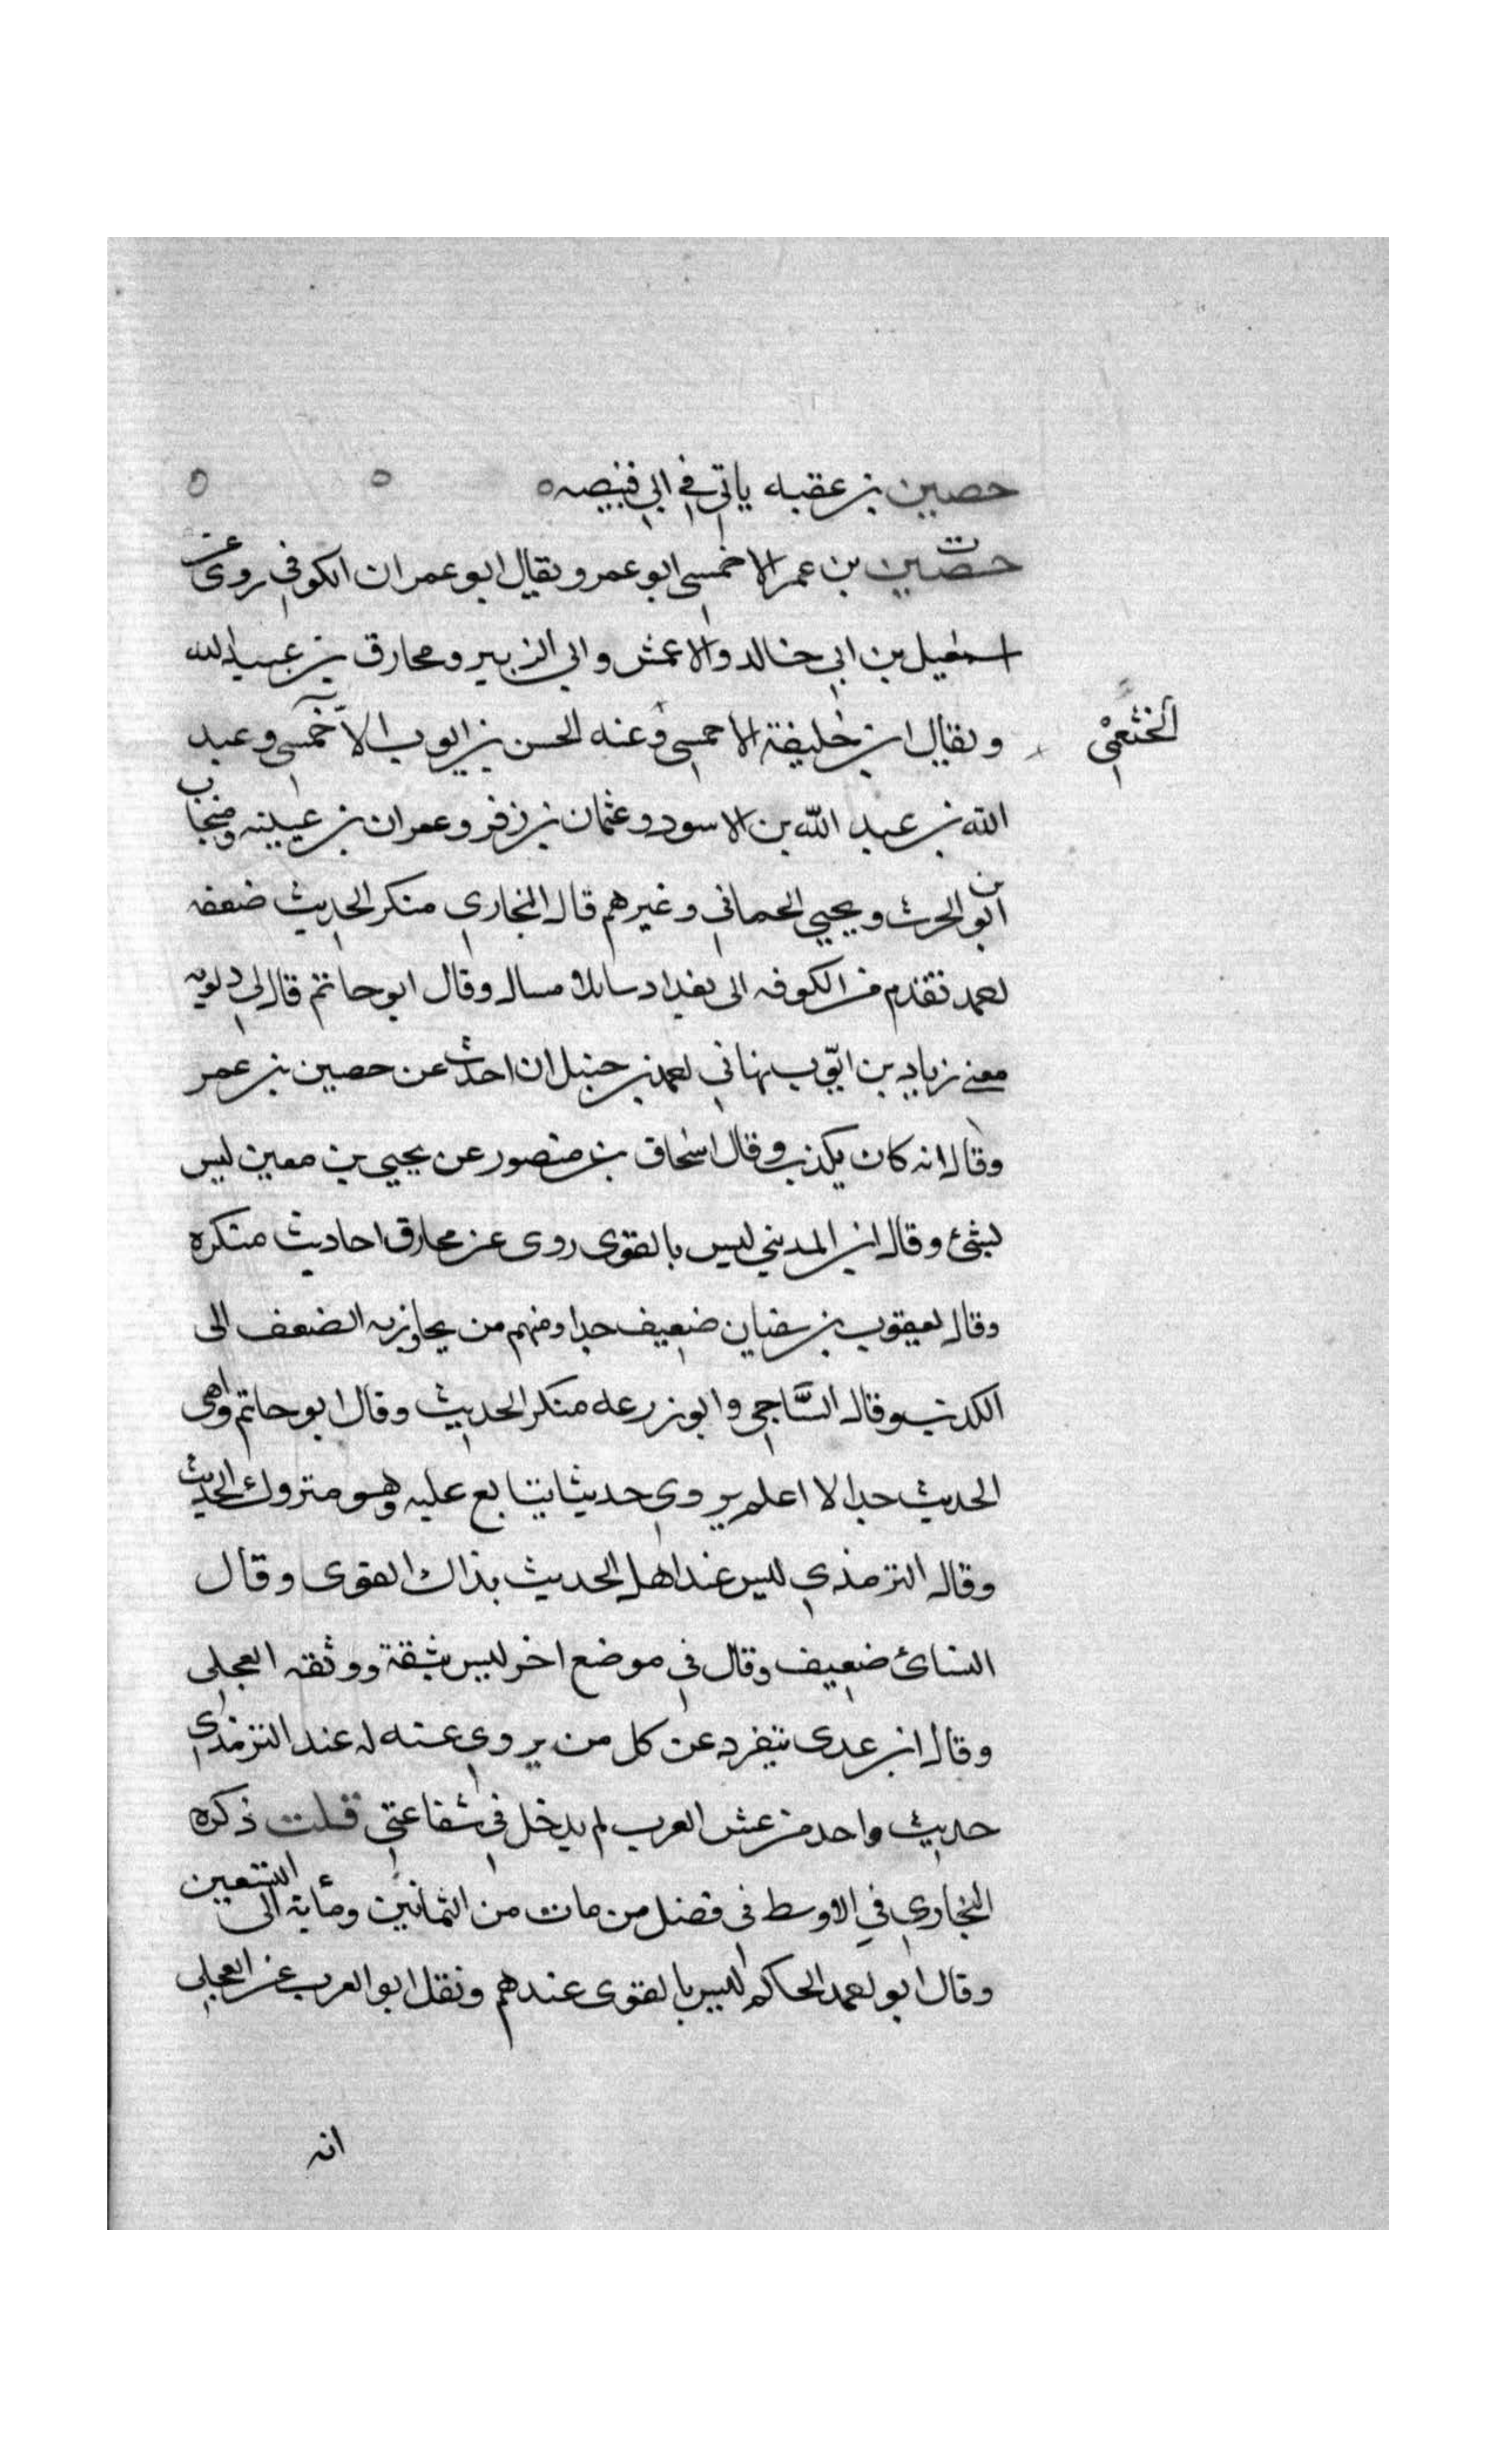 حصين بن عقبه ياتي في ابي قبيصه ه ه ه
ت
حصين بن عمر الاحمسي ابو عمر و يقال ابو عمران الكوفي روى عن
اسمعيل بن ابي خالد والاعمش وابي الزبير ومخارق بن عبد الله
ويقال ابن خليفة الاحمسي وعنه الحسن بن ايوب الاحمسي وعبد
الخثعمي
الله بن عبد الله بن الاسود وعثمان بن زفر وعمران بن عيينه ومنجاب
بن
ابو الحرث ويحيى الحماني وغيرهم قال البخاري منكر الحديث ضعفه
احمد تقدم من الكوفه الى بغداد سايلا مسال وقال ابو حاتم قال لي دلويه
معنى زياد بن ايوب نهاني احمد بن حنبل ان احدث عن حصين بن عمر
وقال انه كان يكذب وقال اسحاق بن منصور عن يحيى بن معين ليس
بشئ وقال ابن المديني ليس بالقوى روى عن مخارق احاديث منكره
وقال يعقوب بن سفيان ضعيف جدا ومنهم من يجاوز به الضعف الى
الكذب وقال الساجي وابو زرعه منكر الحديث وقال ابو حاتم واهى
الحديث جدا لا اعلم يروي حديثا يتابع عليه وهو متروك الحديث
وقال الترمذي ليس عند اهل الحديث بذاك القوى وقال
النسائ ضعيف وقال في موضع اخر ليس بثقة ووثقه العجلى
وقال ابن عدى ينفرد عن كل من يروي عنه له عند الترمذي
حديث واحد من غش العرب لم يدخل في شفاعتي قلت ذكره
البخاري في الاوسط فى فصل من مات من الثمانين ومأية الى التسعين
وقال ابو احمد الحاكم ليس بالقوى عندهم ونقل ابو العرب عن العجلي
انه